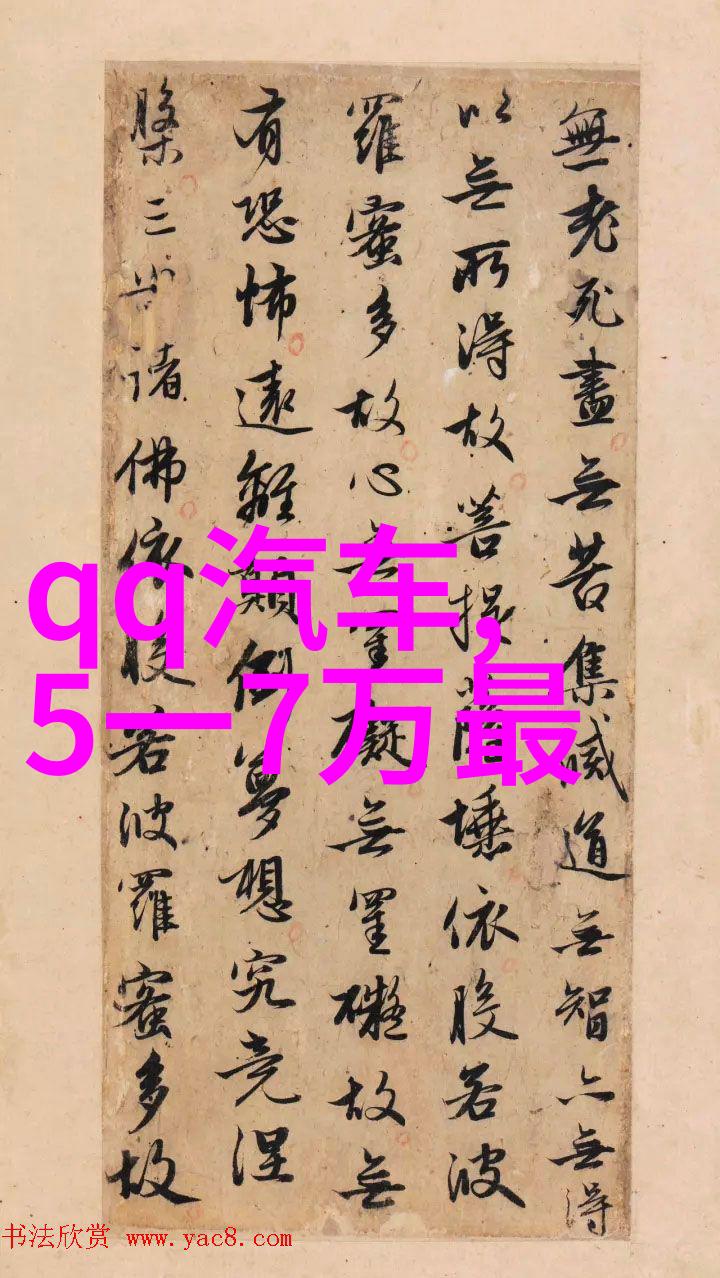 無老死盡無苦集滅道無智亦無得
以無所得故菩提薩埵依般若波
羅蜜多故心無罣礙無罣礙故無
有恐怖遠離顛倒夢想究竟涅
槃三世諸佛依般若波羅蜜多故
qq汽车,
5一7万最
书法欣赏 www.yac8.com